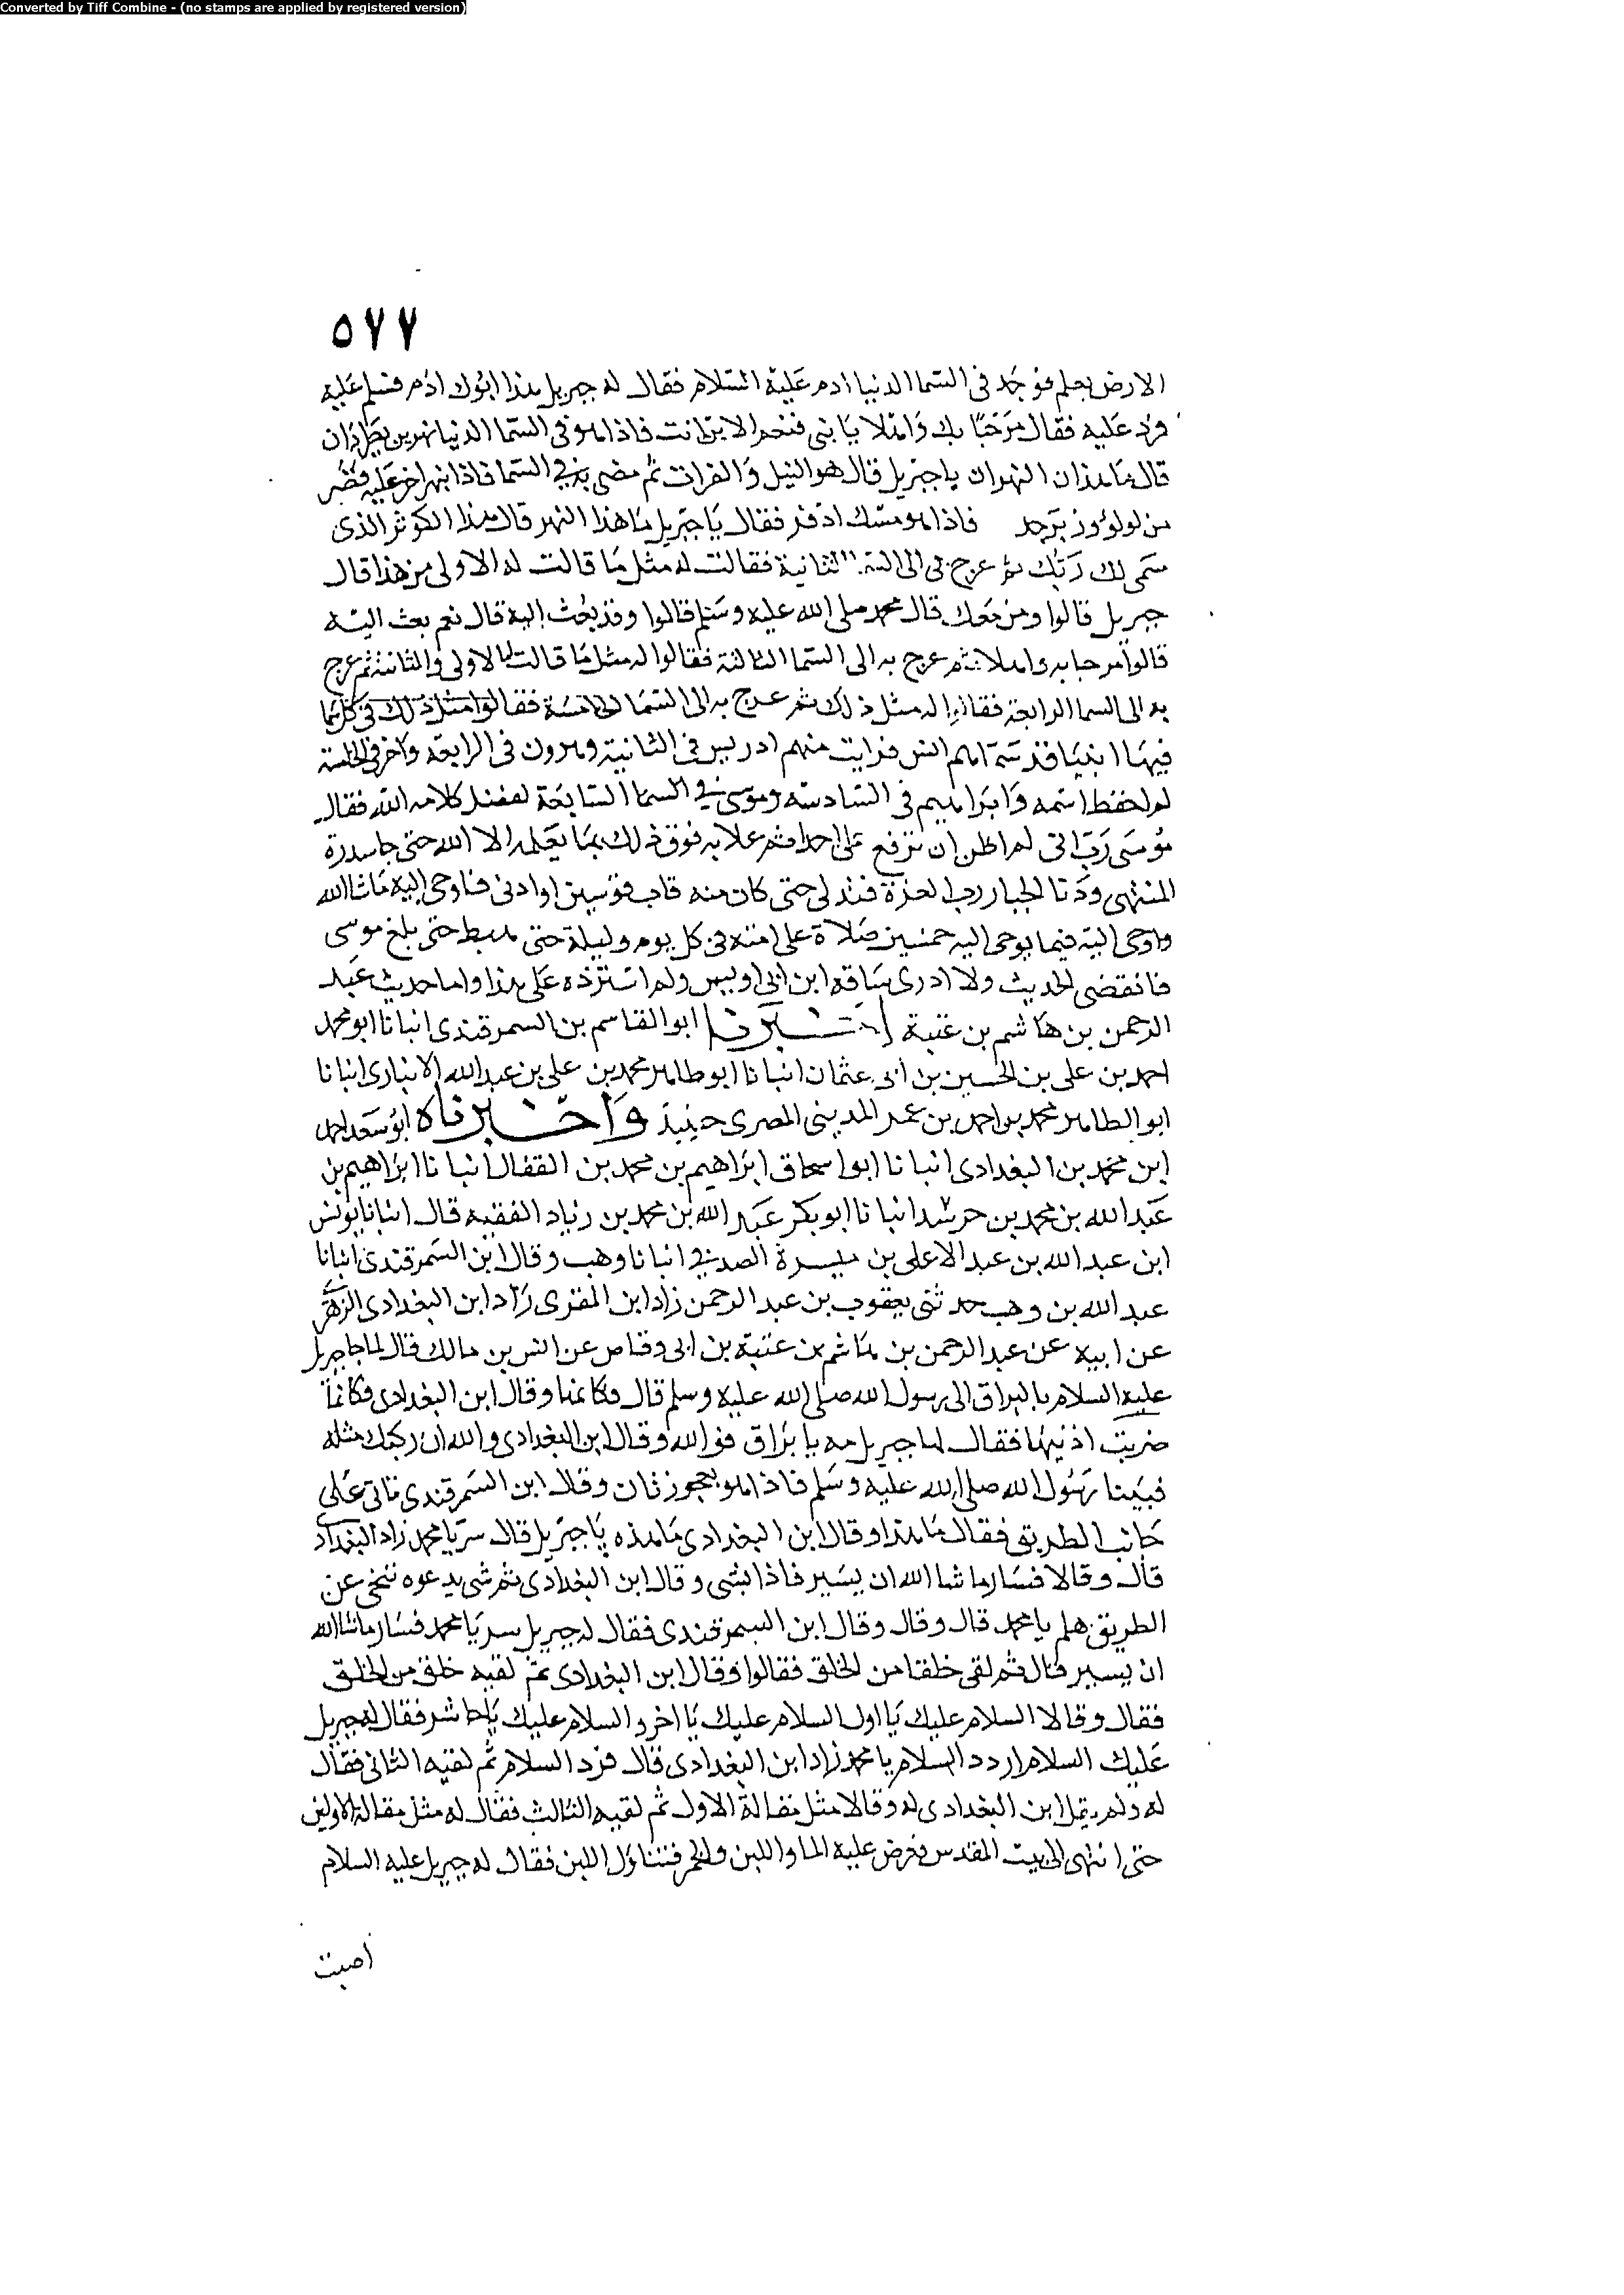 Converted by Tiff Combine - (no stamps are applied by registered version)
٥٧٧
الارض بعلم فوجد فى السما الدنيا ادم عليه السلام فقال له جبريل هذا ابوك ادم فسلم عليه
ورد عليه فقال مرحبا بك واهلا يا بنى فنعم الابن انت فاذا هو فى السما الدنيا نهرين يطردان
قال ما هذان النهران يا جبريل قال هو النيل والفرات ثم مضى به فى السما فاذا بنهر اخر عليه قصر
من لولو وزبرجد فاذا هو مسك اذفر فقال يا جبريل ما هذا النهر قال هذا الكوثر الذى
ربك ثم عرج بى الى الثانية فقالت له مثل ما قالت له الاولى من هذا قال
جبريل قالوا ومن معك قال محمد صلى الله عليه وسلم قالوا وقد بعث اليه قال نعم بعث اليه
قالوا مرحبا به واهلا ثم عرج به الى السما الثالثة فقالوا له مثل ما قالت الاولى والثانية ثم عرج
به الى السما الرابعة له مثل ذلك ثم عرج به الى السما الخامسة فقالوا مثل ذلك فى كل سما
فيها انبيا قد سماهم انس فرايت منهم ادريس فى الثانية وهرون فى الرابعة واخر فى الخامسة
لم احفظ اسمه وابراهيم فى السادسة وموسى فى السما السابعة لفضل كلامه الله فقال
موسى رب انى لم اظن ان ترفع على احدا ثم علا به فوق ذلك بما يعلمه الا الله حتى جا سدرة
المنتهى ودنا الجبار رب العزة فتدلى حتى كان منه قاب قوسين او ادنى فاوحى اليه ما شا الله
واوحى اليه فيما يوحى اليه خمسين صلاة على امته فى كل يوم وليلة حتى هبط حتى بلغ موسى
فانقضى الحديث ولا ادرى ساقه ابن ابى اويس ولم استزده على هذا واما حديث عبد
الرحمن بن هاشم بن عتبة اخبرنا ابو القاسم بن السمرقندى انبانا ابو محمد
احمد بن على بن الحسين بن ابى عثمان انبانا ابو طاهر محمد بن على بن عبد الله الانبارى انبانا
ابو الطاهر محمد بن احمد بن عمر المدينى المصرى حينيذ واخبرناه ابو سعد احمد
ابن محمد بن البغدادى انبانا ابو اسحاق ابراهيم بن محمد بن القفال انبانا ابراهيم بن
عبد الله بن محمد بن خرشد انبانا ابو بكر عبد الله بن محمد بن زياد الفقيه قال انبانا يونس
ابن عبد الله بن عبد الاعلى بن ميسرة الصدفى انبانا وهب وقال ابن السمرقندى انبانا
عبد الله بن وهب حدثنى يعقوب بن عبد الرحمن زاد ابن المقرى زاد ابن البغدادى الزهرى
عن ابيه عن عبد الرحمن بن هاشم بن عتبة بن ابى وقاص عن انس بن مالك قال لما جا جبريل
عليه السلام بالبراق الى رسول الله صلى الله عليه وسلم قال فكانها وقال ابن البغدادى فكانما
ضربت اذنيها فقال لها جبريل مه يا براق فوالله وقال ابن البغدادى والله ان ركبك مثله
فبينا رسول الله صلى الله عليه وسلم فاذا هو بعجوز وقال ابن السمرقندى على
جانب الطريق فقال ما هذا وقال ابن البغدادى ما هذه يا جبريل قال سر يا محمد زاد البغدادى
قال وقالا فسار ما شا الله ان يسير فاذا بشى وقال ابن البغدادى ثم شى يدعوه تنحى عن
الطريق هلم يا محمد قال وقال وقال ابن السمرقندى فقال له جبريل سر يا محمد فسار ما شا الله
ان يسير قال ثم لقى خلقا من الخلق فقالوا وقال ابن البغدادى ثم لقيه خلق من الخلق
فقال وقالا السلام عليك يا اول السلام عليك يا اخر والسلام عليك يا حاشر فقال له جبريل
عليك السلام اردد السلام يا محمد زاد ابن البغدادى قال فرد السلام ثم لقيه الثانى فقال
له ولم يقل ابن البغدادى له وقالا مثل مقالة الاول ثم لقيه الثالث فقال له مثل مقالة الاولين
حتى انتهى الى بيت المقدس فعرض عليه الما واللبن والخمر فتناول اللبن فقال له جبريل عليه السلام
اصبت